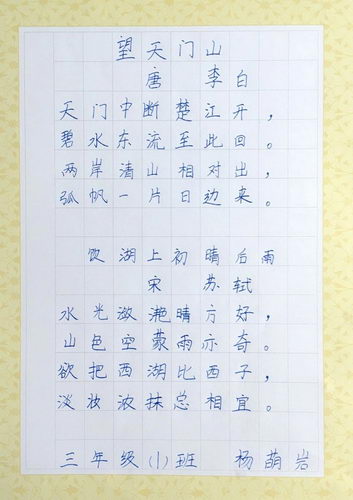 望天门山
唐 李白
天门中断楚江开，
碧水东流至此回。
两岸清山相对出，
弧帆一片日边来。
饮湖上初晴后雨
宋 苏轼
水光潋滟晴方好，
山色空蒙雨亦奇。
欲把西湖比西子，
淡妆浓抹总相宜。
三年级(1)班 杨萌岩